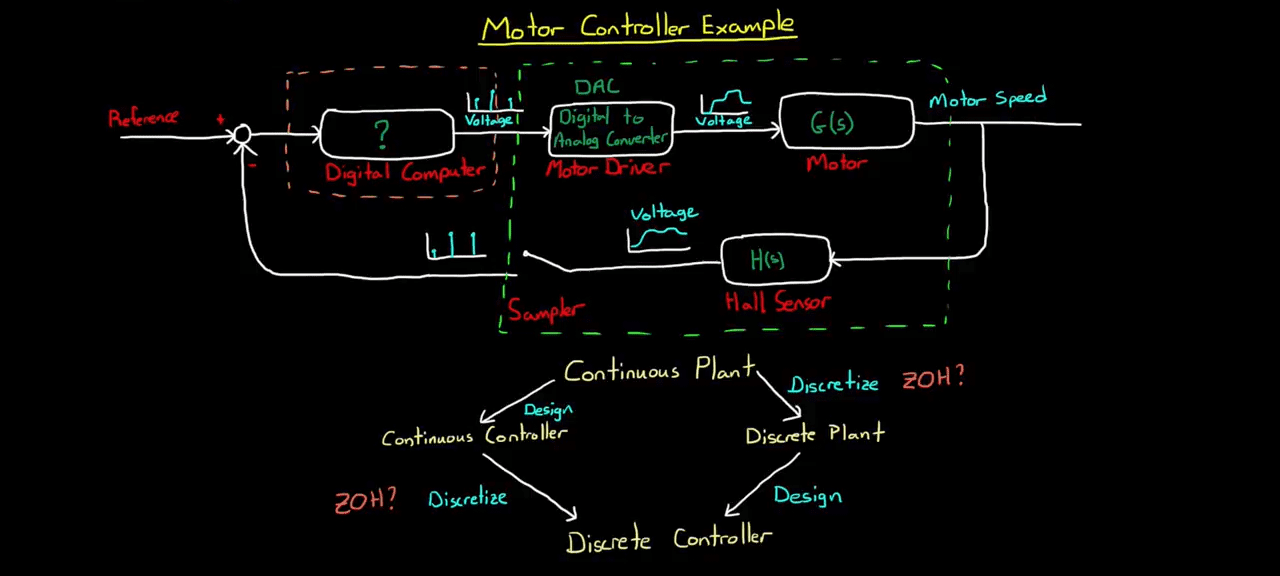 Motor Controller Example
Reference
+
-
?
Digital Computer
Voltage
DAC
Digital to
Analog Converter
Motor Driver
Voltage
G(s)
Motor
Motor Speed
Voltage
H(s)
Hall Sensor
Sampler
Continuous Plant
Design
Discretize ZOH?
Continuous Controller
Discrete Plant
ZOH? Discretize
Design
Discrete Controller